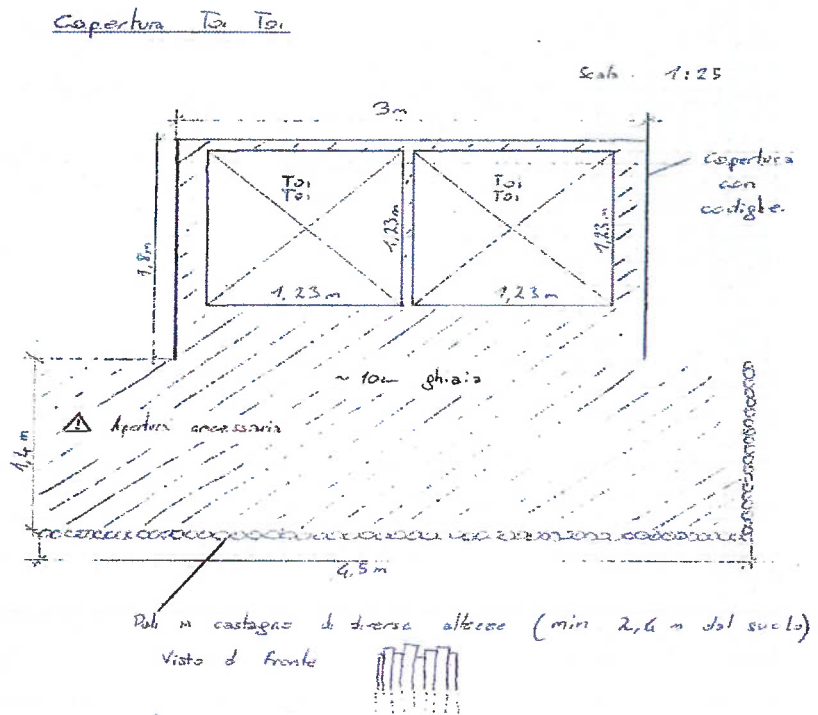 Copertura Toi Toi
Scala 1:25
3m
Copertura
con
codighe.
Toi
Toi
Toi
Toi
1,8m
1,23m
1,23m
1,23m
1,23m
~ 10cm ghiaia
Apertura necessaria
1,4m
4,5m
Pali in castagno di diverse altezze (min 2,4 m dal suolo)
Visto di fronte